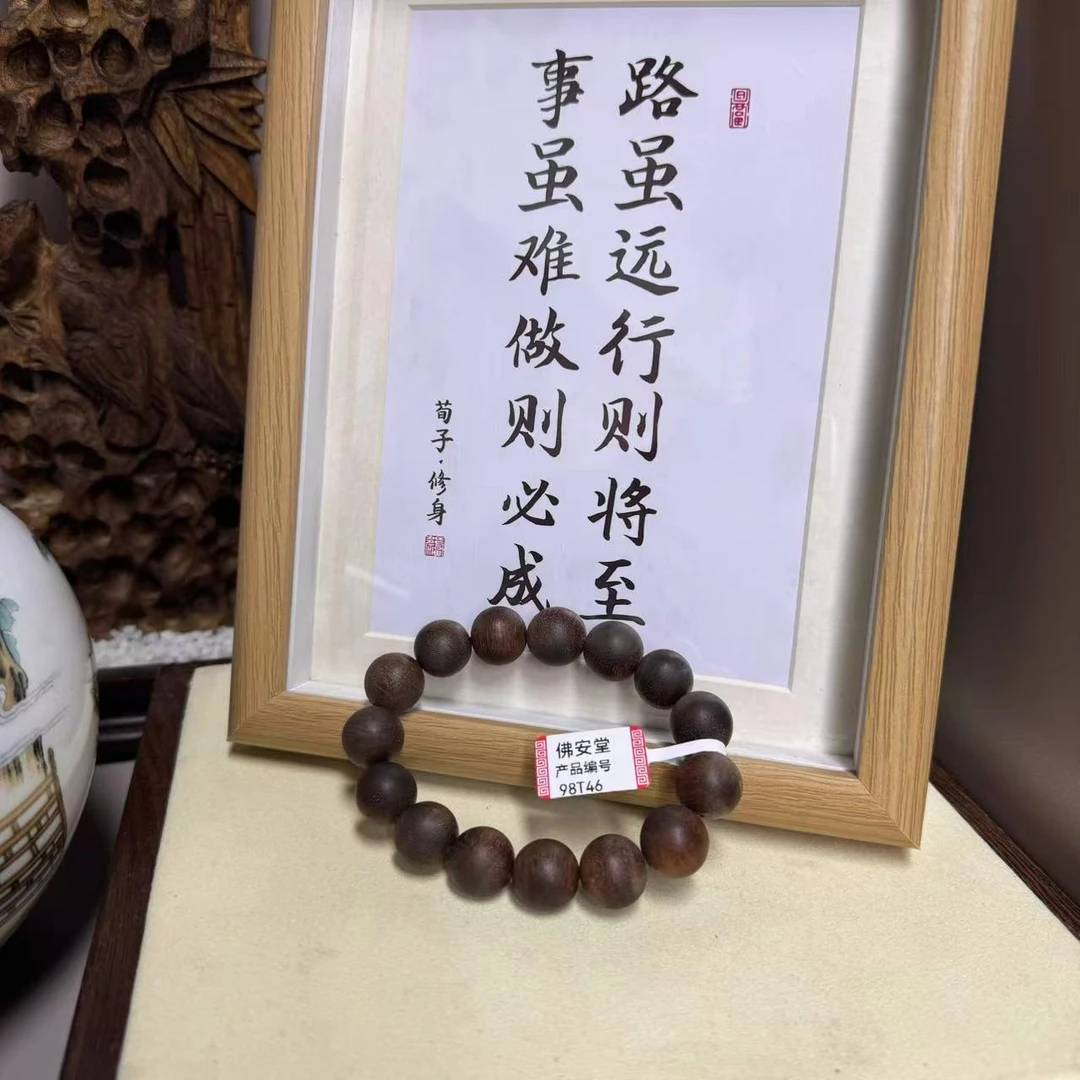 路虽远行则将至
事虽难做则必成
荀子·修身
佛安堂
产品编号
98T46